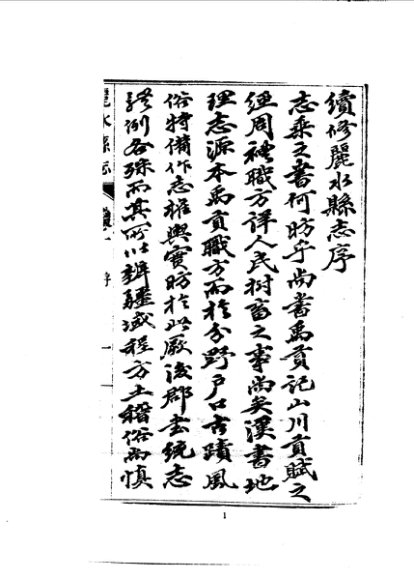 續修麗水縣志序
志乘之書何昉乎尚書禹貢記山川貢賦之
經周禮職方詳人民樹畜之事尚矣漢書地
理志源本禹貢職方而於分野戶口古蹟風
俗特備作志權輿實昉於此厥後郡書統志
體例各殊而其所以辨疆域程方土稽俗尚慎
麗水縣志
序
一
1